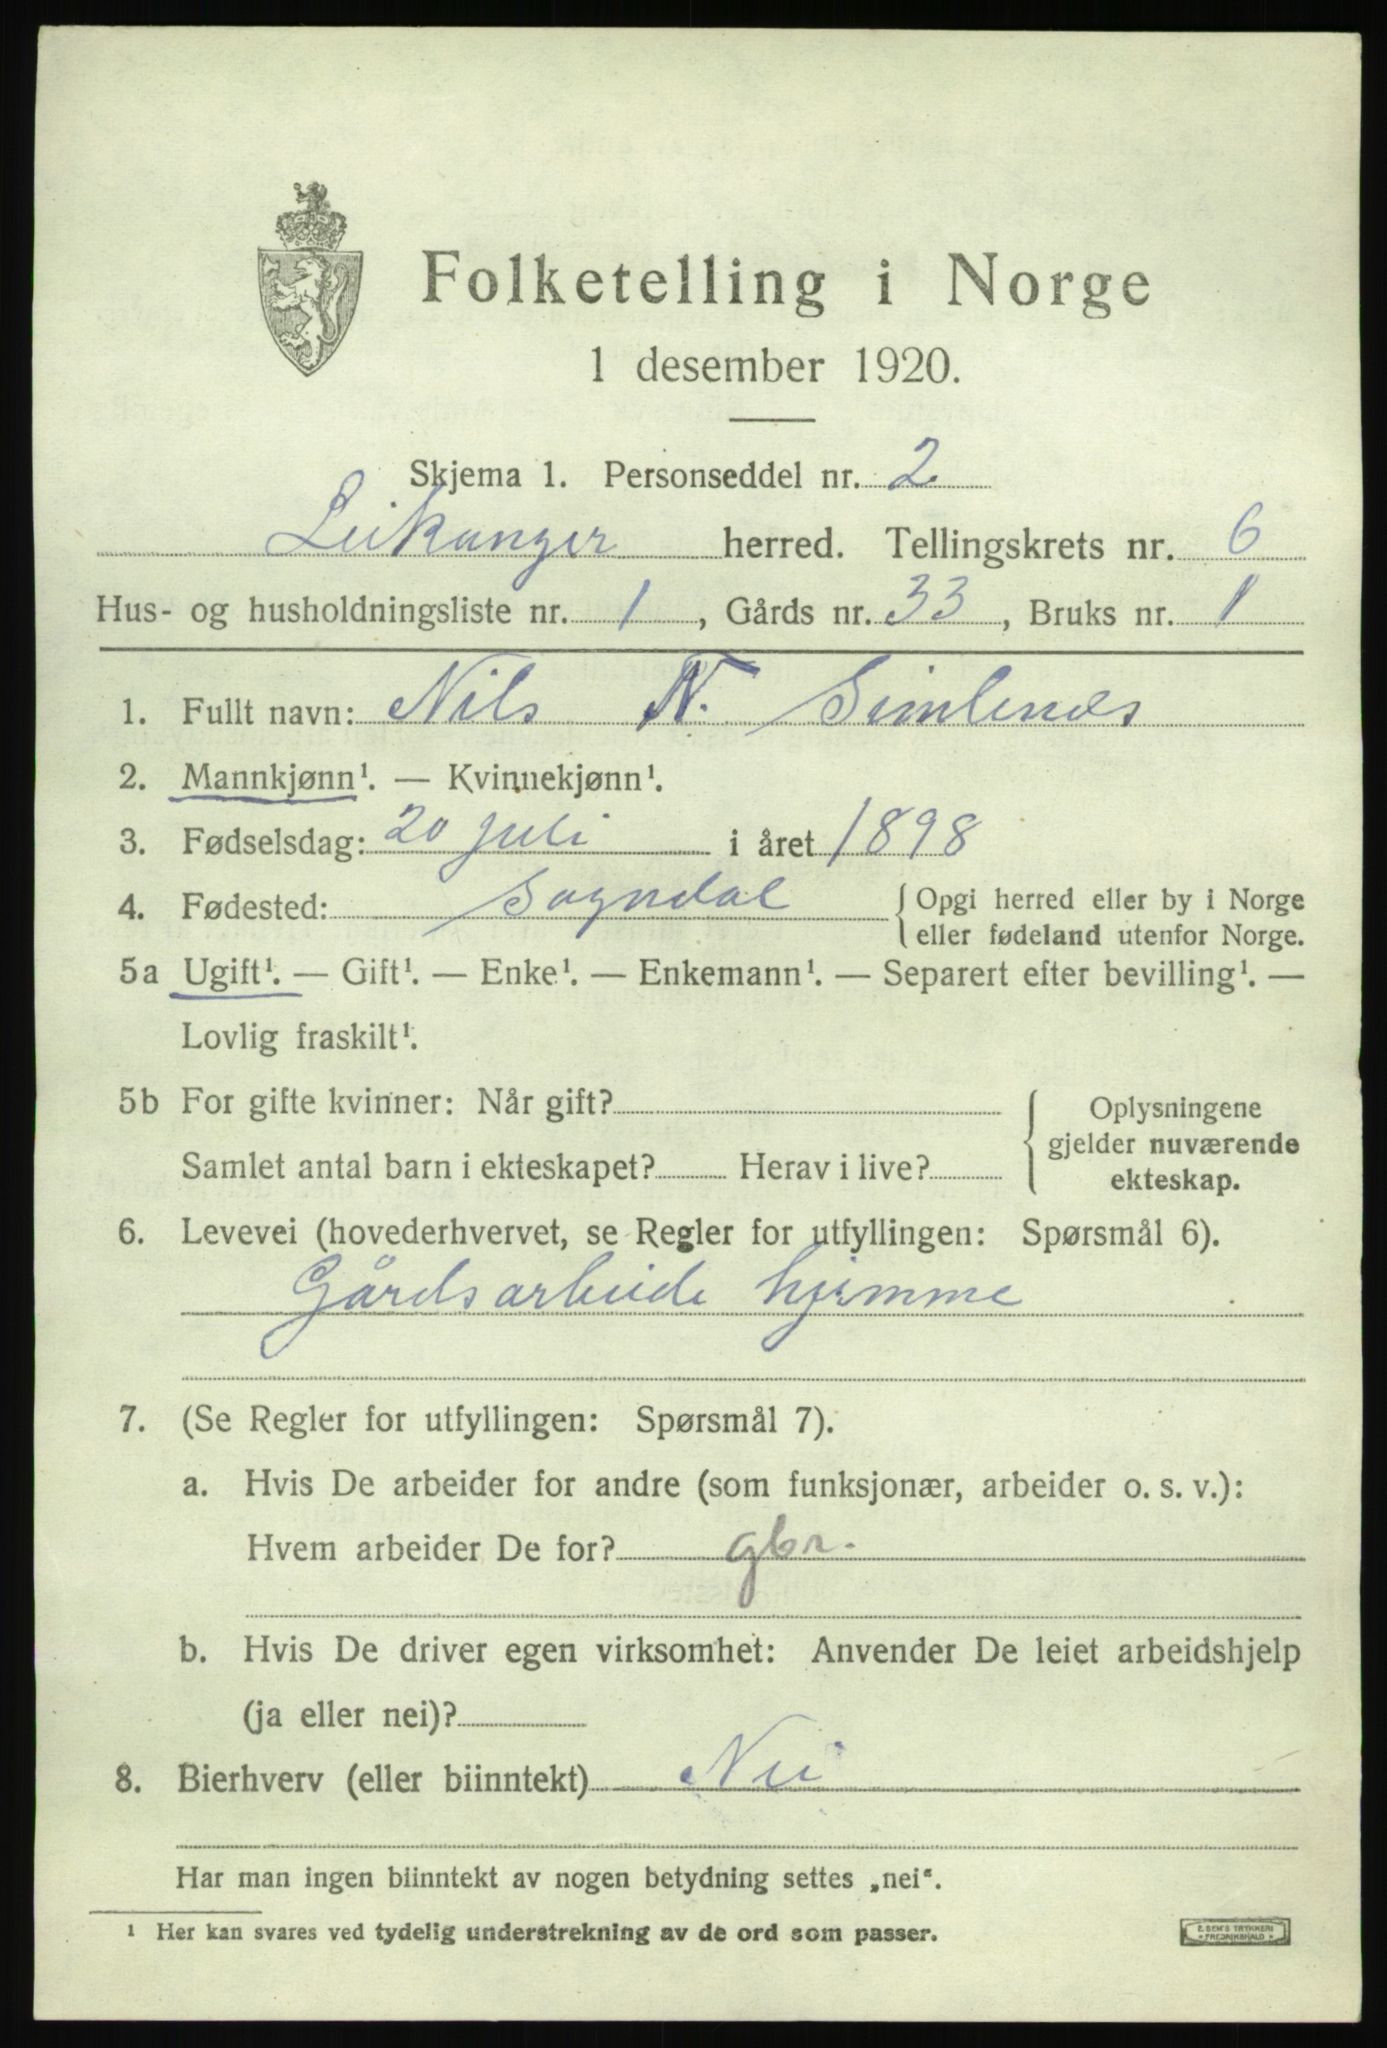 Folketelling i Norge
1 desember 1920.
Skjema 1. Personseddel nr. 2.
Leikanger herred. Tellingskrets nr. 6
Hus- og husholdningsliste nr. 1, Gårds nr. 33, Bruks nr. 1
1. Fullt navn: Nils N. Simlenes
2. Mannkjønn¹. — Kvinnekjønn¹.
3. Fødselsdag: 20 juli i året 1898
4. Fødested: Sogndal { Opgi herred eller by i Norge
eller fødeland utenfor Norge.
5a Ugift¹. — Gift¹. — Enke¹. — Enkemann¹. — Separert efter bevilling¹. —
Lovlig fraskilt¹.
5b For gifte kvinner: Når gift?
Samlet antal barn i ekteskapet? Herav i live?
{ Oplysningene
gjelder nuværende
ekteskap.
6. Levevei (hovederhvervet, se Regler for utfyllingen: Spørsmål 6).
Gårdsarbeide hjemme
7. (Se Regler for utfyllingen: Spørsmål 7).
a. Hvis De arbeider for andre (som funksjonær, arbeider o. s. v.):
Hvem arbeider De for? gbr.
b. Hvis De driver egen virksomhet: Anvender De leiet arbeidshjelp
(ja eller nei)?
8. Bierhverv (eller biinntekt) Nei
Har man ingen biinntekt av nogen betydning settes „nei“.
¹ Her kan svares ved tydelig understrekning av de ord som passer.
E. SEM'S TRYKKERI
FREDRIKSHALD